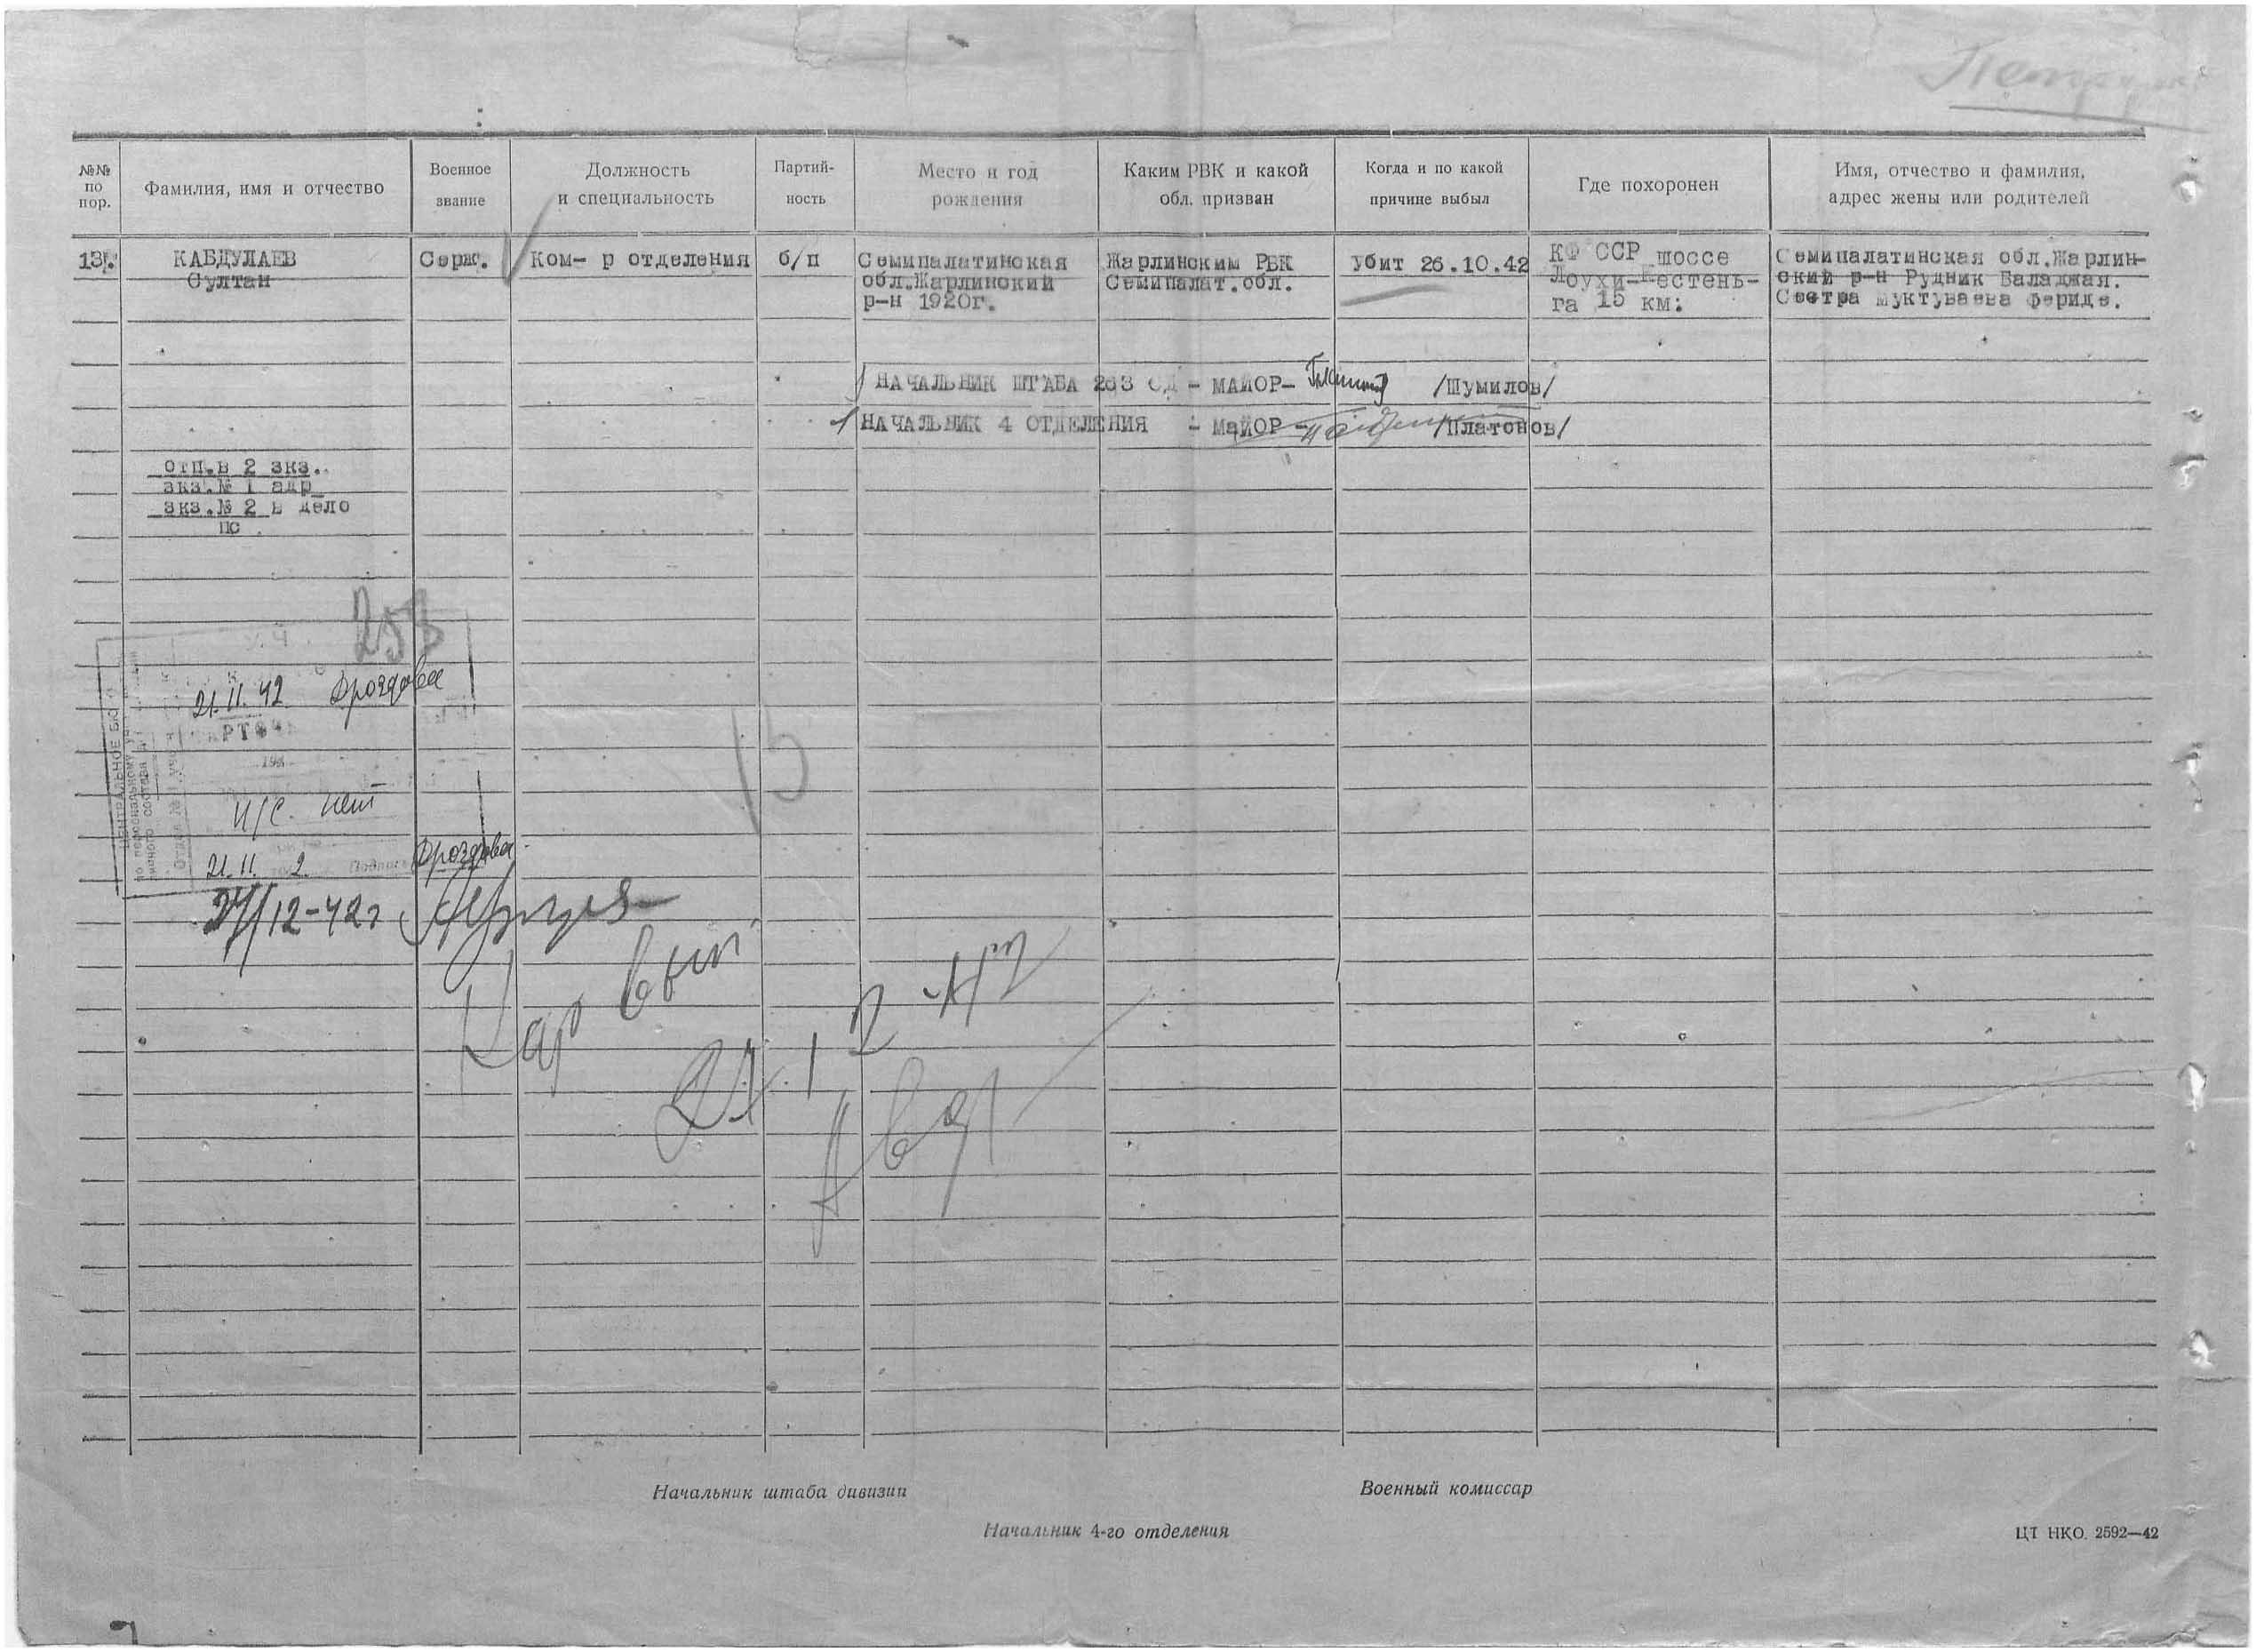 №№ по пор.
Фамилия, имя и отчество
Военное звание
Должность и специальность
Партий-ность
Место и год рождения
Каким РВК и какой обл. призван
Когда и по какой причине выбыл
Где похоронен
Имя, отчество и фамилия, адрес жены или родителей
13.
КАБДУЛАЕВ
Султан
Серж.
Ком- р отделения
б/п
Семипалатинская
обл.Жарлинский
р-н 1920г.
Жарлинским РВК
Семипалат.обл.
убит 26.10.42
КФ ССР шоссе
Лоухи-Кестень-
га 15 км.
Семипалатинская обл.Жарлин-
ский р-н Рудник Баладжал.
Сестра Муктуваева Фериде.
НАЧАЛЬНИК ШТАБА 263 СД - МАЙОР- /Шумилов/
НАЧАЛЬНИК 4 ОТДЕЛЕНИЯ - МАЙОР - /Платонов/
отп.в 2 экз.
экз.№ 1 адр
экз.№ 2 в дело
пс
253
21.11.42 Дроздова
15
И/С. нет
21.11. 2. Подпись Дроздова
27/12-42г
Кар вып
Начальник штаба дивизии
Военный комиссар
Начальник 4-го отделения
ЦТ НКО. 2592—42